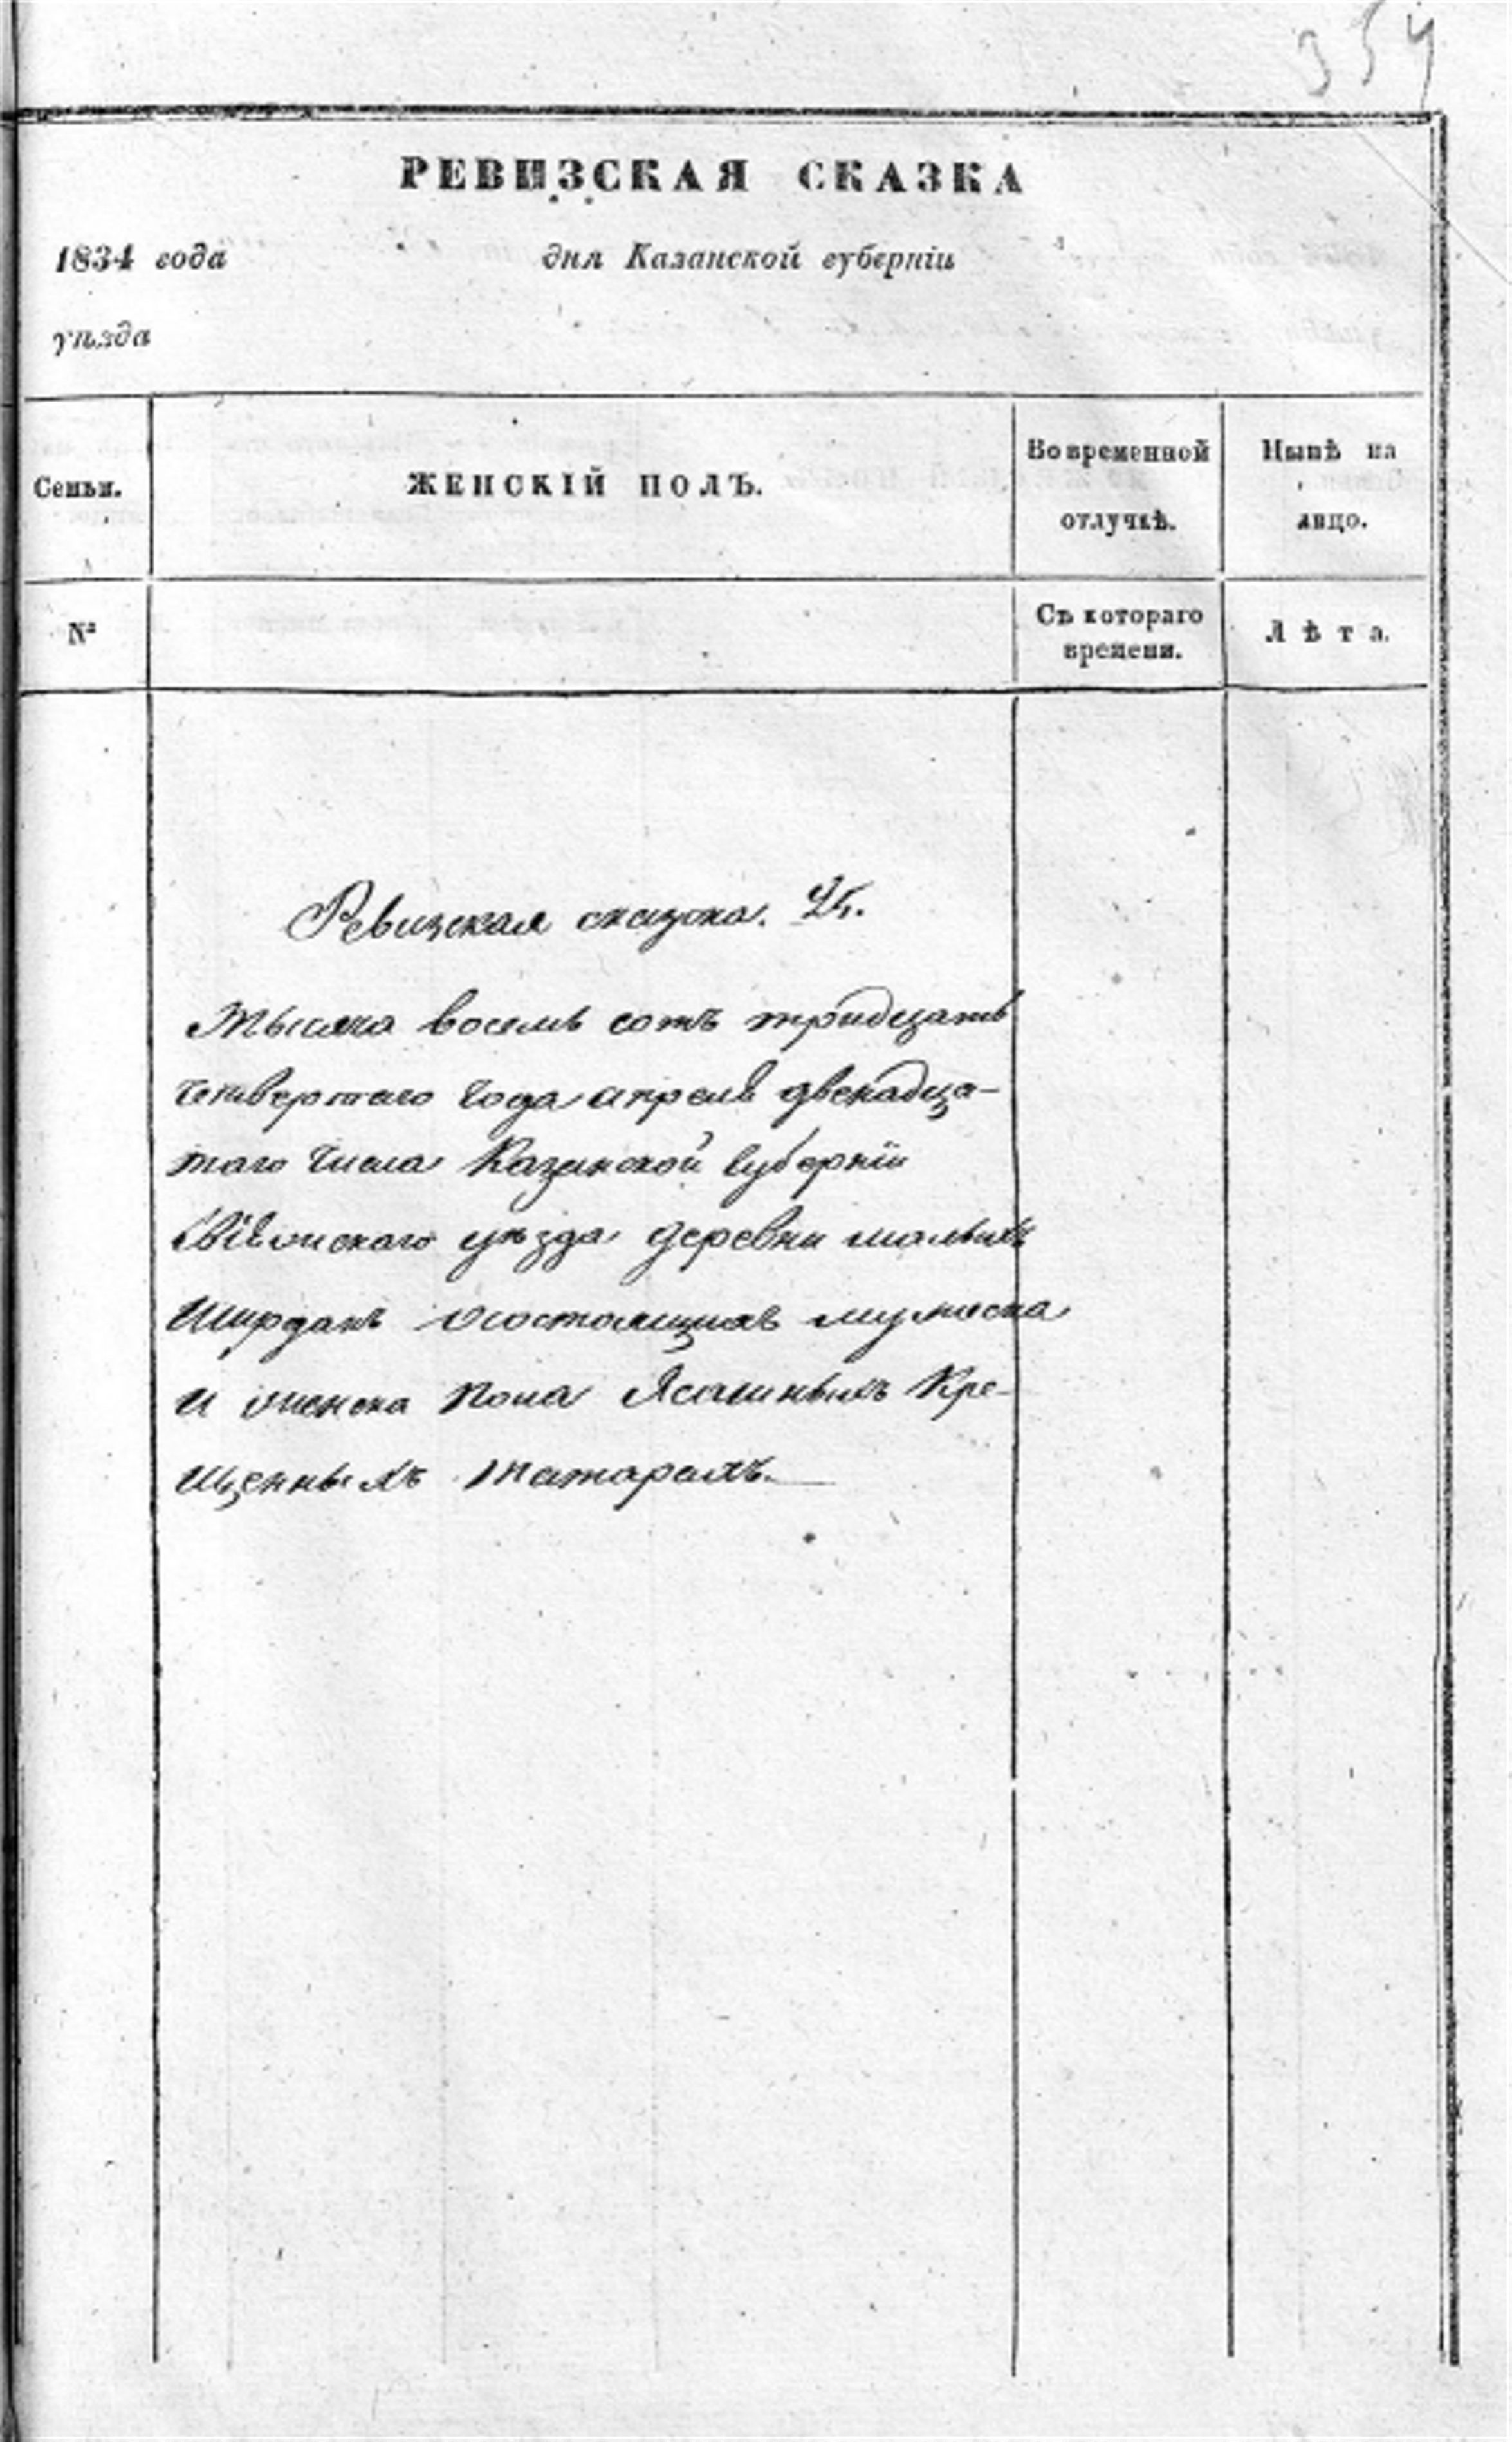 354
РЕВИЗСКАЯ СКАЗКА
1834 года дня Казанской губерніи
уѣзда
Семьи. ЖЕНСКІЙ ПОЛЪ. Во временной отлучкѣ. Нынѣ на лицо.
№ Съ котораго времени. Лѣта.
Ревизская сказка.
Тысяча восемь сотъ тридцать
четвертаго года апреля двенадца-
таго числа Казанской губерніи
Свіяжскаго уѣзда деревни малыхъ
Ширданъ осостоящихъ мужеска
и женска пола Ясашныхъ Кре-
щенныхъ татарахъ.